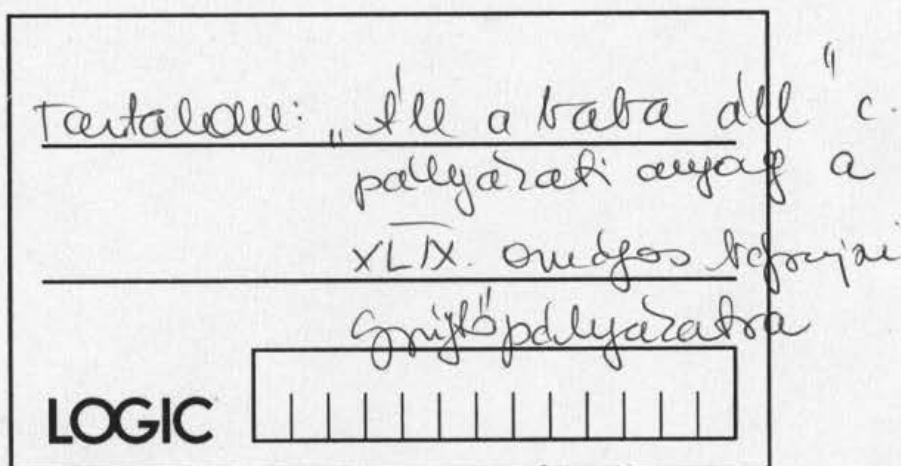 Tartalom: „Áll a baba áll" c.
pályázati anyag a
XLIX. országos néprajzi
gyűjtőpályázatra
LOGIC